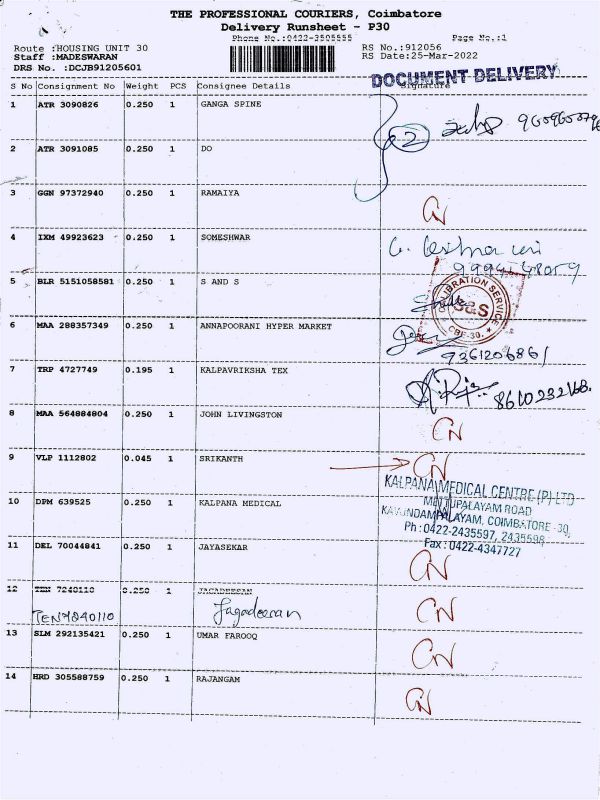 THE PROFESSIONAL COURIERS, Coimbatore
Delivery Runsheet - P30
Phone No.:0422-3505555 Page No.:1
Route :HOUSING UNIT 30 RS No.:912056
Staff :MADESWARAN RS Date:25-Mar-2022
DRS No. :DCJB91205601
DOCUMENT DELIVERY
S No Consignment No Weight PCS Consignee Details Signature
1 ATR 3090826 0.250 1 GANGA SPINE
2
2 ATR 3091085 0.250 1 DO
3 GGN 97372940 0.250 1 RAMAIYA CN
4 IXM 49923623 0.250 1 SOMESHWAR
5 BLR 5151058581 0.250 1 S AND S
CALIBRATION SERVICE
S&S
CBE-30.
6 MAA 288357349 0.250 1 ANNAPOORANI HYPER MARKET
9361206861
7 TRP 4727749 0.195 1 KALPAVRIKSHA TEX
8610232168.
8 MAA 564884804 0.250 1 JOHN LIVINGSTON CN
9 VLP 1112802 0.045 1 SRIKANTH CN
10 DPM 639525 0.250 1 KALPANA MEDICAL
KALPANA MEDICAL CENTRE (P) LTD
METTUPALAYAM ROAD
KAVUNDAMPALAYAM, COIMBATORE - 30,
Ph : 0422-2435597, 2435598
Fax : 0422-4347727
11 DEL 70044841 0.250 1 JAYASEKAR CN
12 TEN 7240110 0.250 1 JAGADEESAN CN
TEN7240110 Jagadeesan
13 SLM 292135421 0.250 1 UMAR FAROOQ CN
14 HRD 305588759 0.250 1 RAJANGAM CN